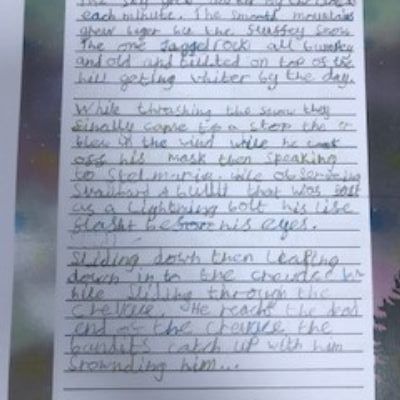 The sky got darker by the
each minute. The smooth mountains
grew biger by the Stussey snow.
The one Jaggel rock all bumpey
and old and tilted on top of the
hill geting whiter by the day.
While thrashing the snow they
finally came to a stop the
blew in the wind while he
off his mask then speaking
to Stelmaria. wile observeing
Svalbard A bullit that was fast
as a lightning bolt his life
flasht before his eyes.
Sliding down then leafing
down in to the
hile sliding through the
He reacht the dead
end of the the
bandits catch up with him
him...